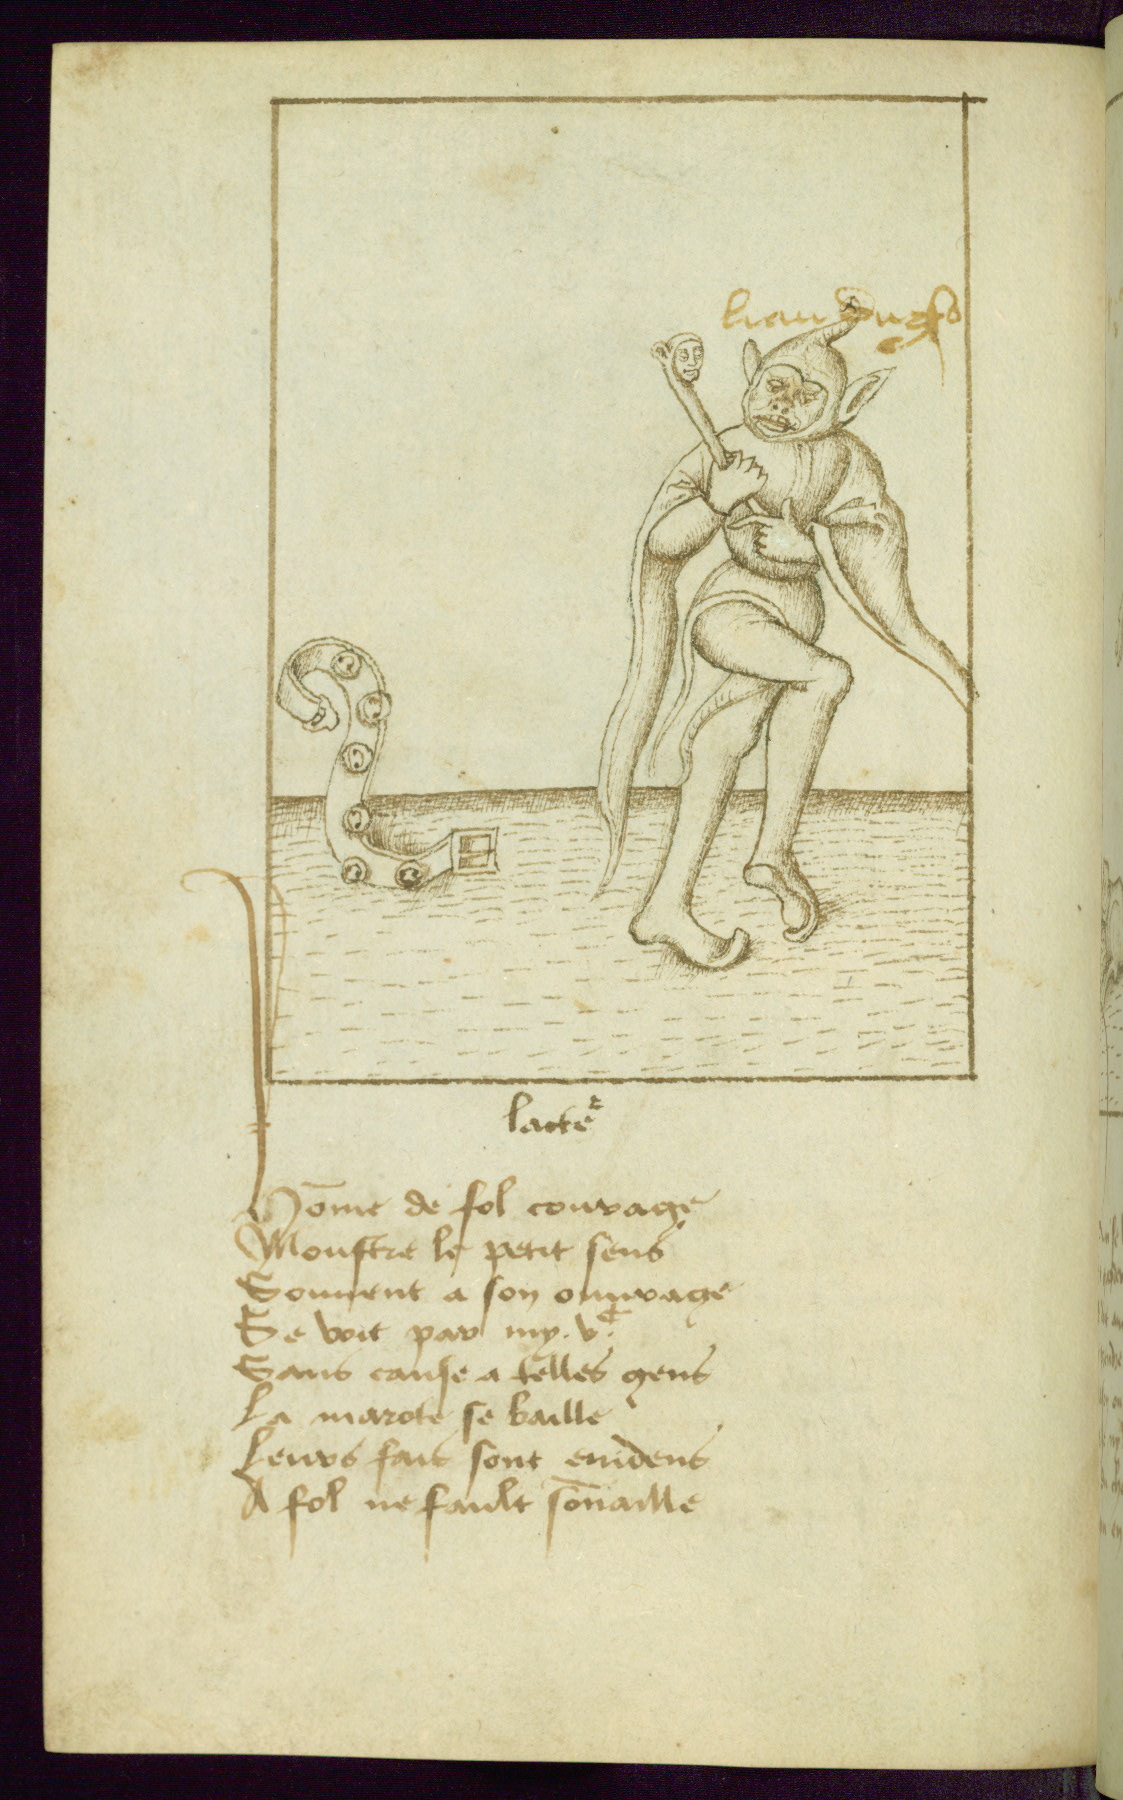 lacteᵉ
Hōme de fol couraige
Monstre le petit sens
Souuent a son ouuraige
Se voit par my. vᶜ.
Sans cause a telles gens
La marote se baille
Leurs fais sont euidens
A fol ne fault sōnaille